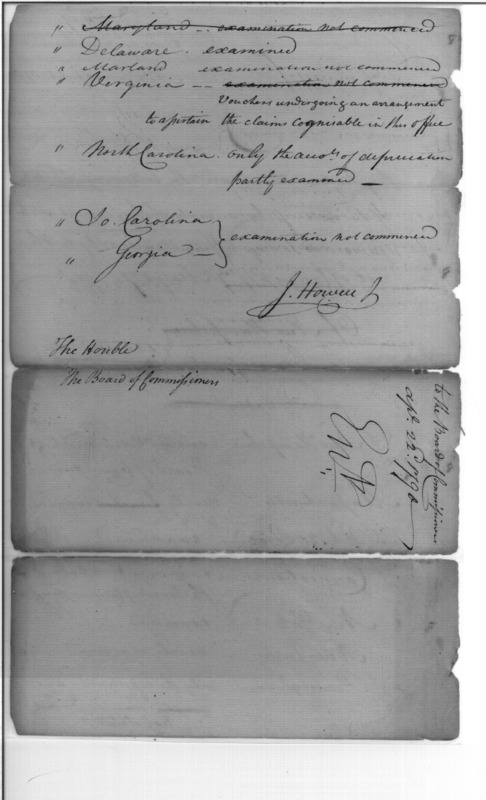 " Maryland - - examination not commenced
" Delaware . examined
" Marland examination not commenced
" Virginia - - examination not commenced
Vouchers undergoing an arrangement
to assertain the claims cognisable in this office
" North Carolina . only the accots. of depreciation
partly examined —
" So. Carolina
" Georgia — } examination not commenced
J. Howell
The Honble
The Board of Commissioners
to the Board of Commissioners
apl. 22d. 1790